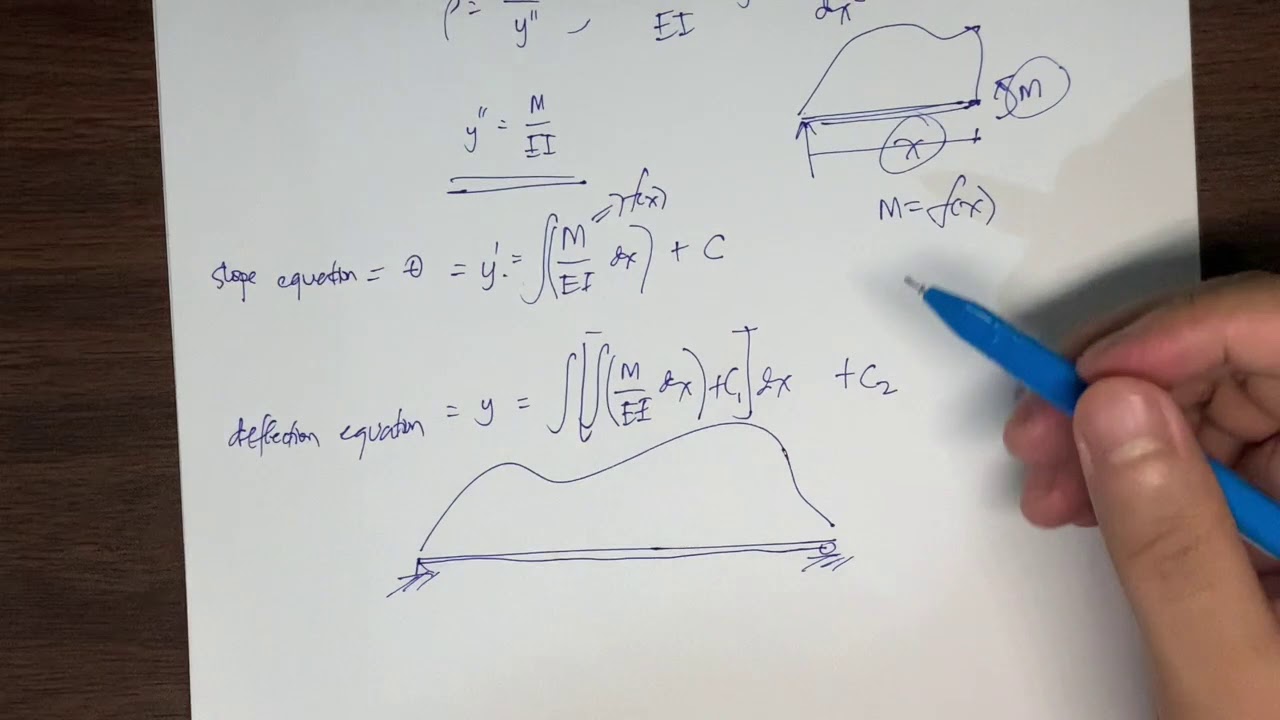 ρ = y'' , EI dx²
y'' = M/EI
M
x
M = f(x)
slope equation = θ = y' = ∫(M/EI dx) + C
⇒ f(x)
deflection equation = y = ∫[∫(M/EI dx) + C₁] dx + C₂